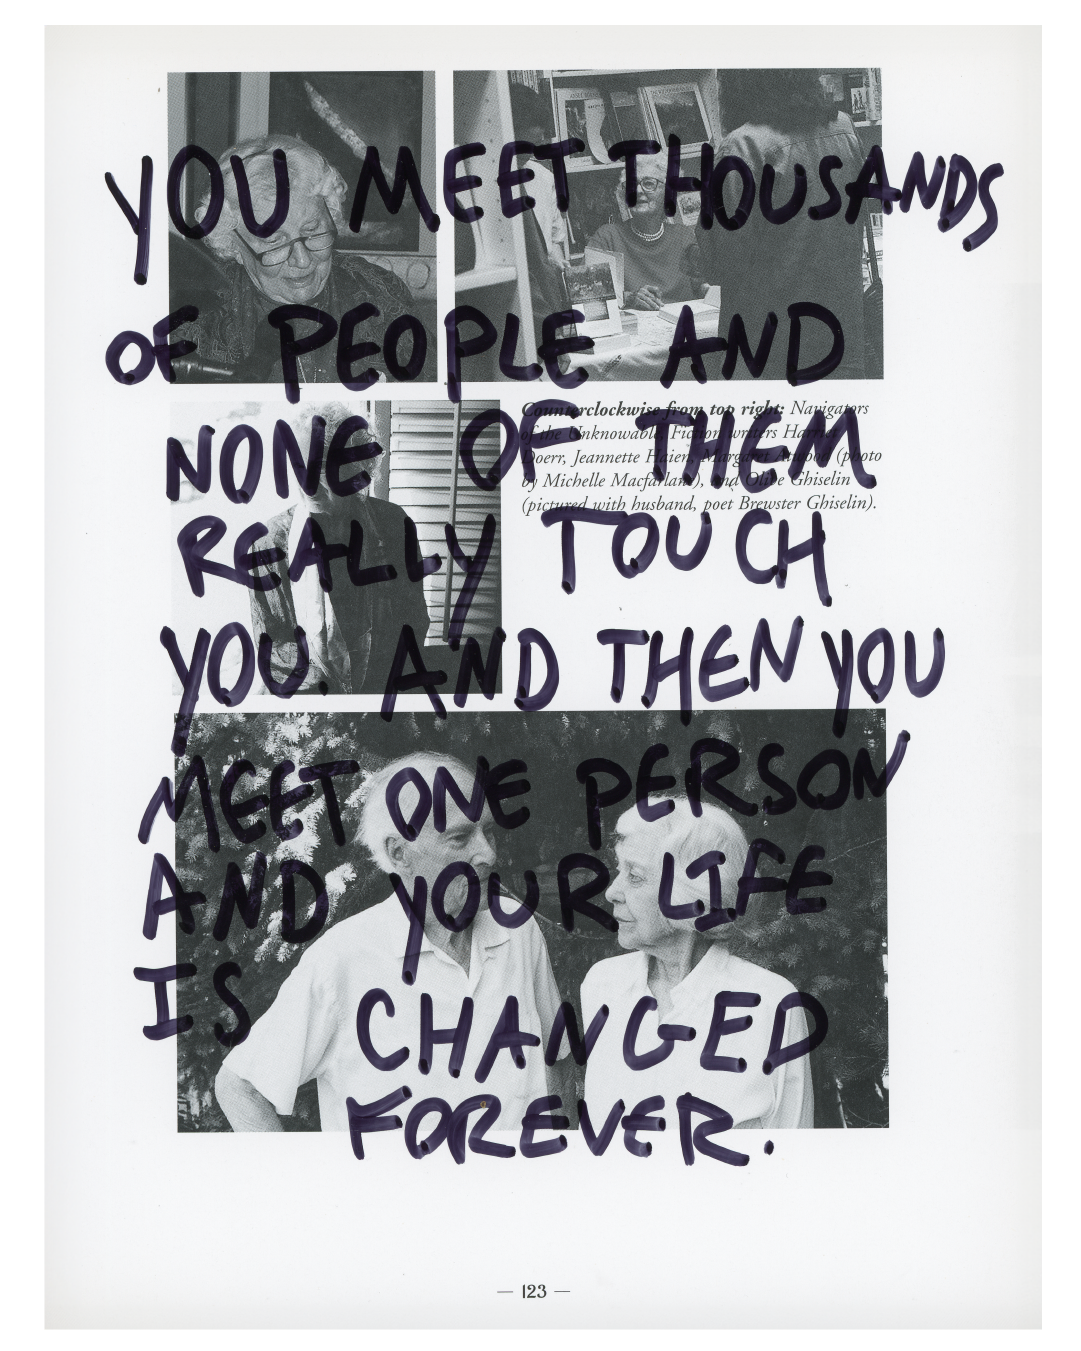 YOU MEET THOUSANDS
OF PEOPLE AND
NONE OF THEM
REALLY TOUCH
YOU. AND THEN YOU
MEET ONE PERSON
AND YOUR LIFE
IS CHANGED
FOREVER.
Counterclockwise from top right: Navigators
of the Unknowable, Fiction writers Harriet
Doerr, Jeannette Haien, Margaret Atwood (photo
by Michelle Macfarlane), and Olive Ghiselin
(pictured with husband, poet Brewster Ghiselin).
— 123 —